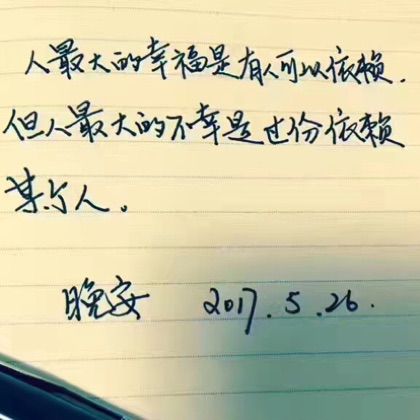 人最大的幸福是有人可以依赖.
但人最大的不幸是过份依赖
某个人。
晚安 2017.5.26.